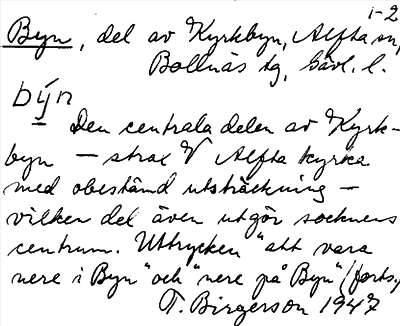 1-2
Byn, del av Kyrkbyn, Alfta sn,
Bollnäs tg, Gävl. l.
býn
Den centrala delen av Kyrk-
byn — strax V Alfta kyrka
med obestämd utsträckning —
vilken del även utgör socknens
centrum. Uttrycken "att vara
nere i Byn" och "nere på Byn" (forts.)
T. Birgerson 1947